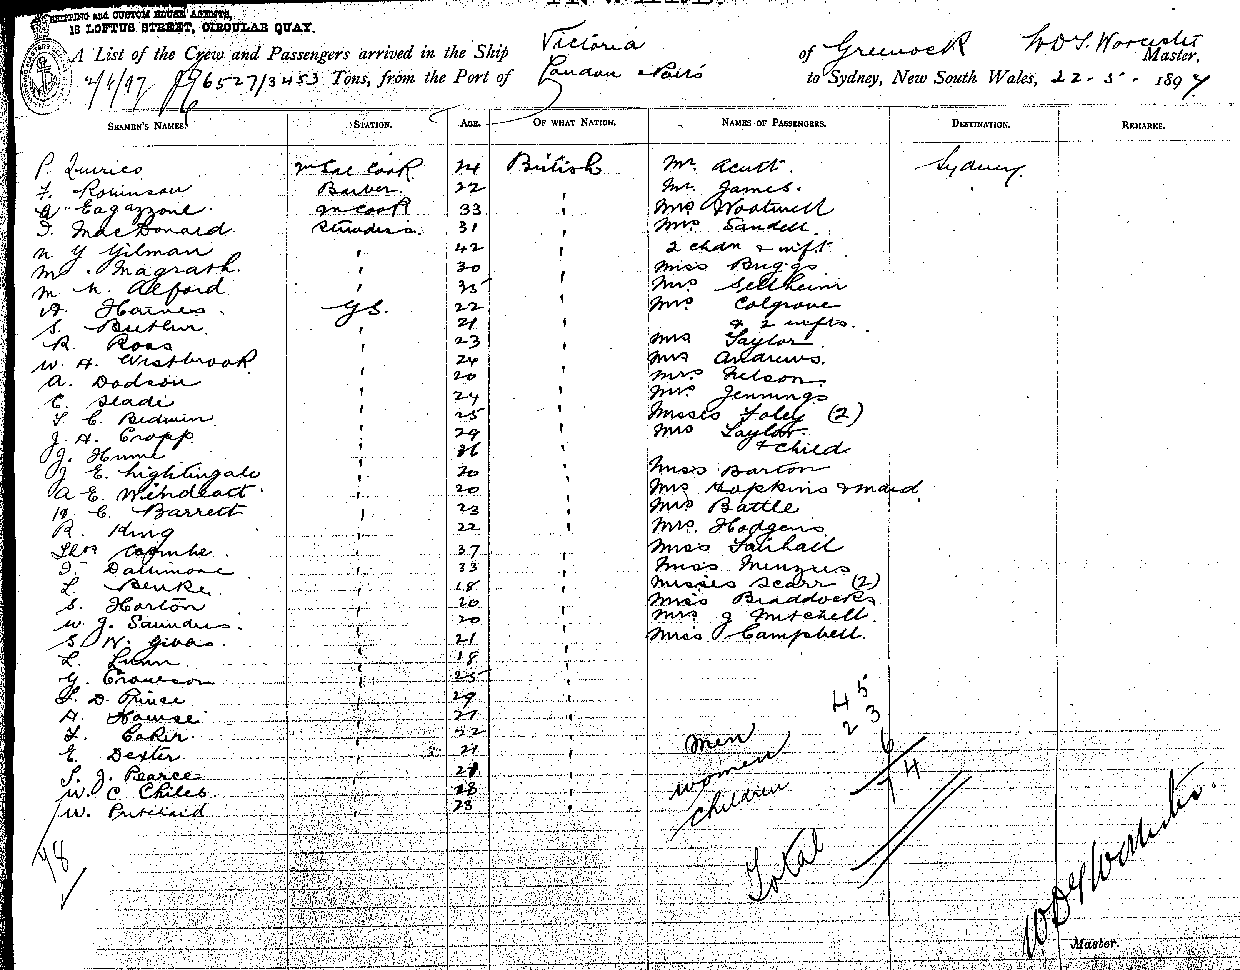 SHIPPING AND CUSTOM HOUSE AGENTS,
18 LOFTUS STREET, CIRCULAR QUAY.
A List of the Crew and Passengers arrived in the Ship Victoria of Greenock W.D.G. Worcester Master,
6527/3453 Tons, from the Port of London & Ports to Sydney, New South Wales, 22-5- 1897
SEAMEN'S NAMES. STATION. AGE. OF WHAT NATION. NAMES OF PASSENGERS. DESTINATION. REMARKS.
P. Cook 24 British Mr. Acutt Sydney
F. Robinson Barber 22 " Mr. James
Cook 33 " Mrs
F. MacDonald Stewardess 31 " Mrs Sandell
N Y Gilman " 42 " 2 chdn & inft
M. Magrath " 30 " Miss Briggs
M. N. Alford " 35 " Mrs Sellheim
A. Haines G.S. 22 " Mrs Colgrove
S. Butler " 21 " & 2 infts.
R. Ross " 23 " Mrs Taylor
W. H. Westbrook " 24 " Mrs Andrews
A. Dodson " 20 " Mrs Nelson
C. Slade " 24 " Mrs Jennings
T C. Bedwin " 25 " Misses Foley (2)
J. A. Cropp " 29 " Mrs Taylor
J. Hume " 26 " & Child
J E. Nightingale " 20 " Miss Barton
A E. Windeatt " 20 " Mrs Hopkins & maid
H C. Barrett " 23 " Mrs Battle
R. King " 22 " Mrs. Hodgens
Coombe " 37 " Miss Fairhall
F. " 33 " Miss Menzies
L. " 18 " Misses Scarr (2)
S. Horton " 20 " Miss Braddocks
W. J. Saunders " 20 " Mrs J Mitchell
S. W. " 21 " Miss Campbell
L. Lunn " 18 "
G. " 25 "
F. D. Prince " 29 "
A. Howse " 27 " Men 45
F. Baker " 22 " Women 23
E. Dexter " 21 " Children 6
S. J. Pearce " 21 " Total 74
W. C. Chiles " 28 "
W. " 23 "
98
W.D.G. Worcester
Master.